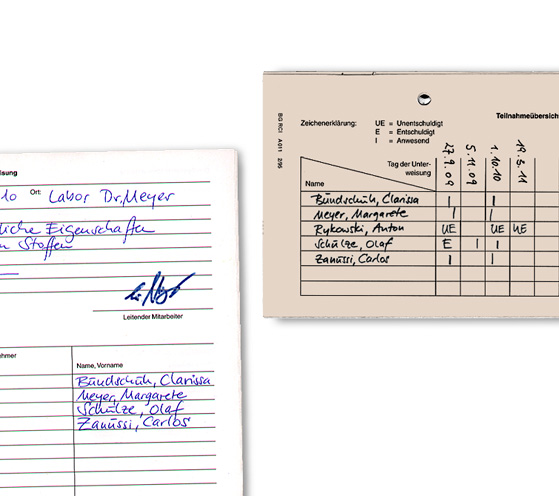 isung
10 Ort: Labor Dr. Meyer
liche Eigenschaften
n Stoffen
Leitender Mitarbeiter
ehmer
Name, Vorname
Bundschuh, Clarissa
Meyer, Margarete
Schulze, Olaf
Zanussi, Carlos
BG RCI A 011 2/95
Teilnahmeübersich
Zeichenerklärung: UE = Unentschuldigt
E = Entschuldigt
I = Anwesend
Tag der Unter-
weisung
27.9.09 5.11.09 1.10.10 19.5.11
Name
Bundschuh, Clarissa I I
Meyer, Margarete I I
Rykowski, Anton UE UE UE
Schulze, Olaf E I I
Zanussi, Carlos I I